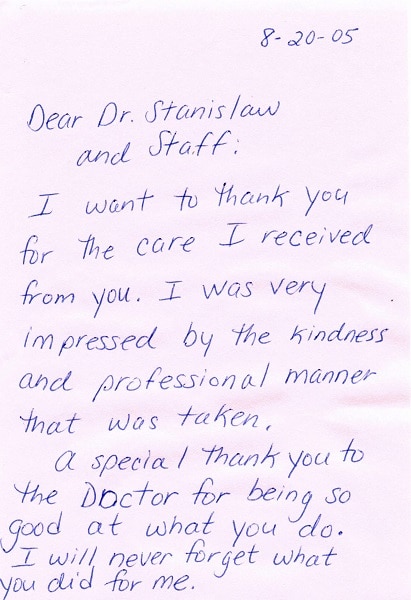 8-20-05
Dear Dr. Stanislaw
and Staff:
I want to thank you
for the care I received
from you. I was very
impressed by the kindness
and professional manner
that was taken.
A special thank you to
the Doctor for being so
good at what you do.
I will never forget what
you did for me.